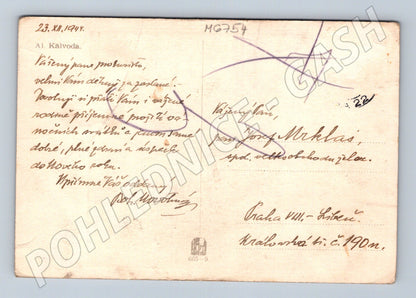 23.XII.1941.
MG754
Al. Kalvoda.
Vážený pane
velmi Vám děkuji za zaslané.
Dovoluji si přáti Vám i vážené
rodině příjemné prožití vá-
nočních svátků a
dobré, plné zdraví a úspěchů
do Nového roku.
Upřímně Váš oddaný
Boh. Novotný
Vážený pán,
pan Josef Mrklas,
spol. velkoobchodu želez.
Praha VIII. - Libeň.
Královská tř. č. 190n.
POHLEDNICE - GASH